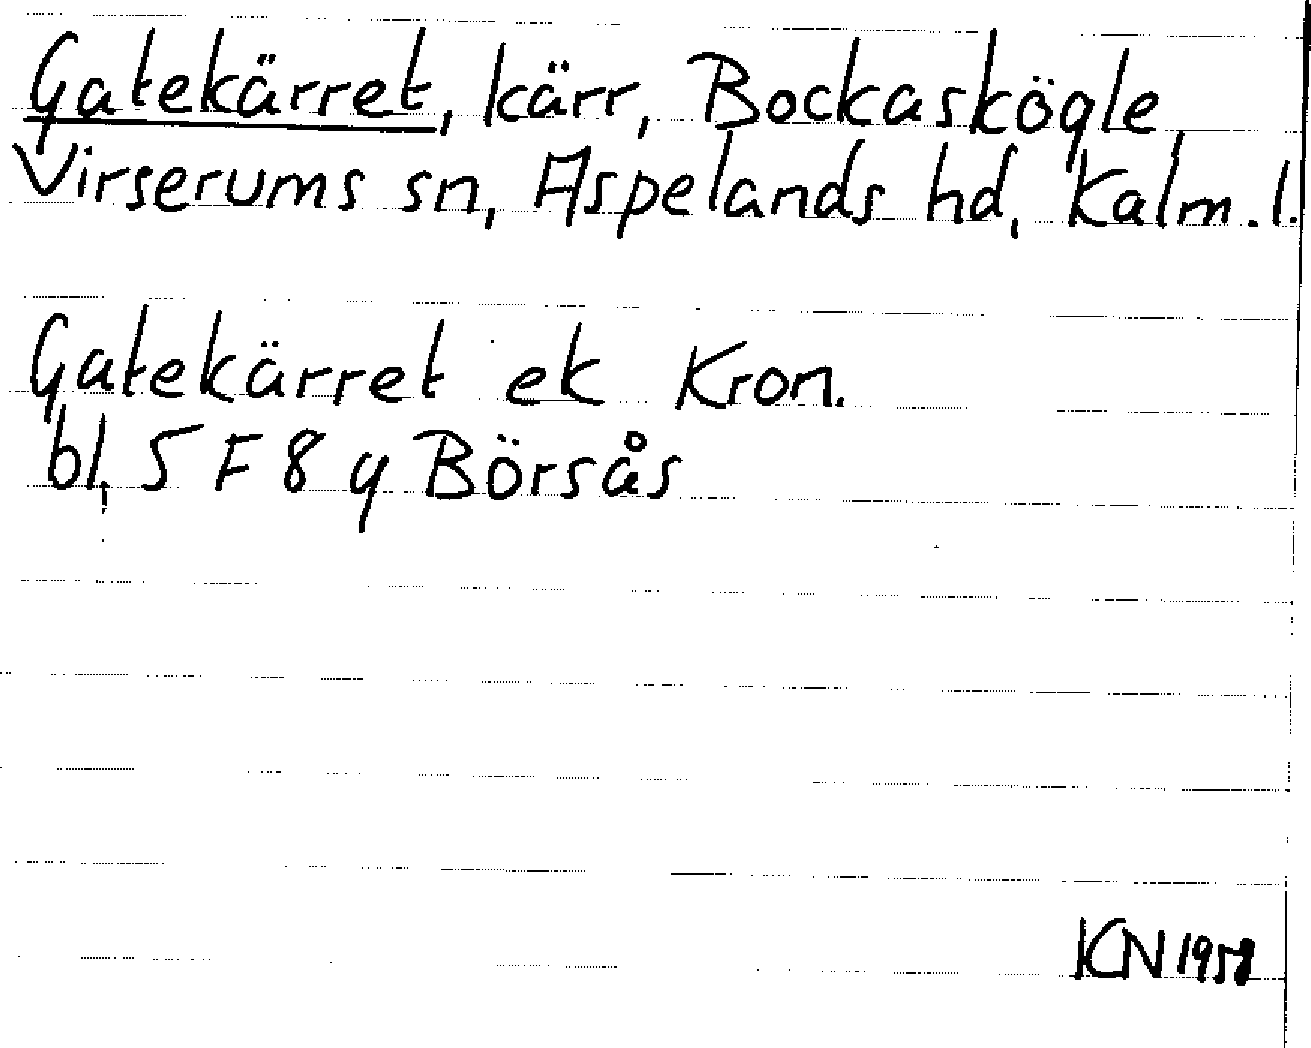 Gatekärret, kärr, Bockaskögle
Virserums sn, Aspelands hd, Kalm. l.
Gatekärret ek Kron.
bl. 5 F 8 g Börsås
KN 1958